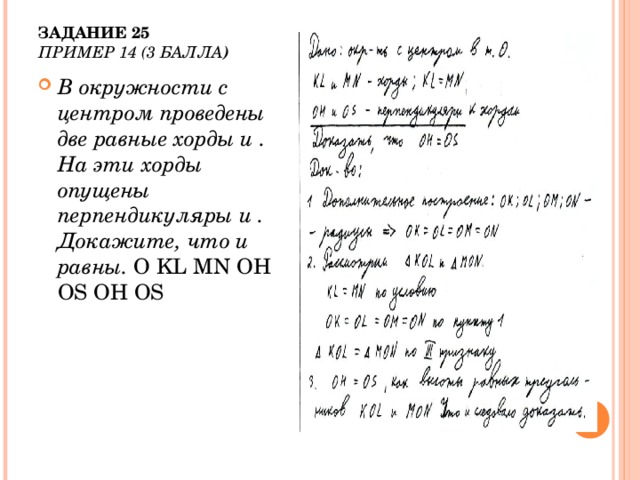 ЗАДАНИЕ 25
ПРИМЕР 14 (3 БАЛЛА)
В окружности с
центром проведены
две равные хорды и .
На эти хорды
опущены
перпендикуляры и .
Докажите, что и
равны. O KL MN OH
OS OH OS
Дано: окр-ть с центром в т. О.
KL и MN - хорды; KL=MN,
OH и OS - перпендикуляры к хордам
Доказать, что OH=OS
Док-во:
1 Дополнительное построение: OK; OL; OM; ON -
- радиусы => OK=OL=OM=ON
2. Рассмотрим Δ KOL и Δ MON.
KL=MN по условию
OK=OL=OM=ON по пункту 1
Δ KOL = Δ MON по III признаку
3. OH=OS, как высоты равных треуголь-
ников KOL и MON Что и следовало доказать.